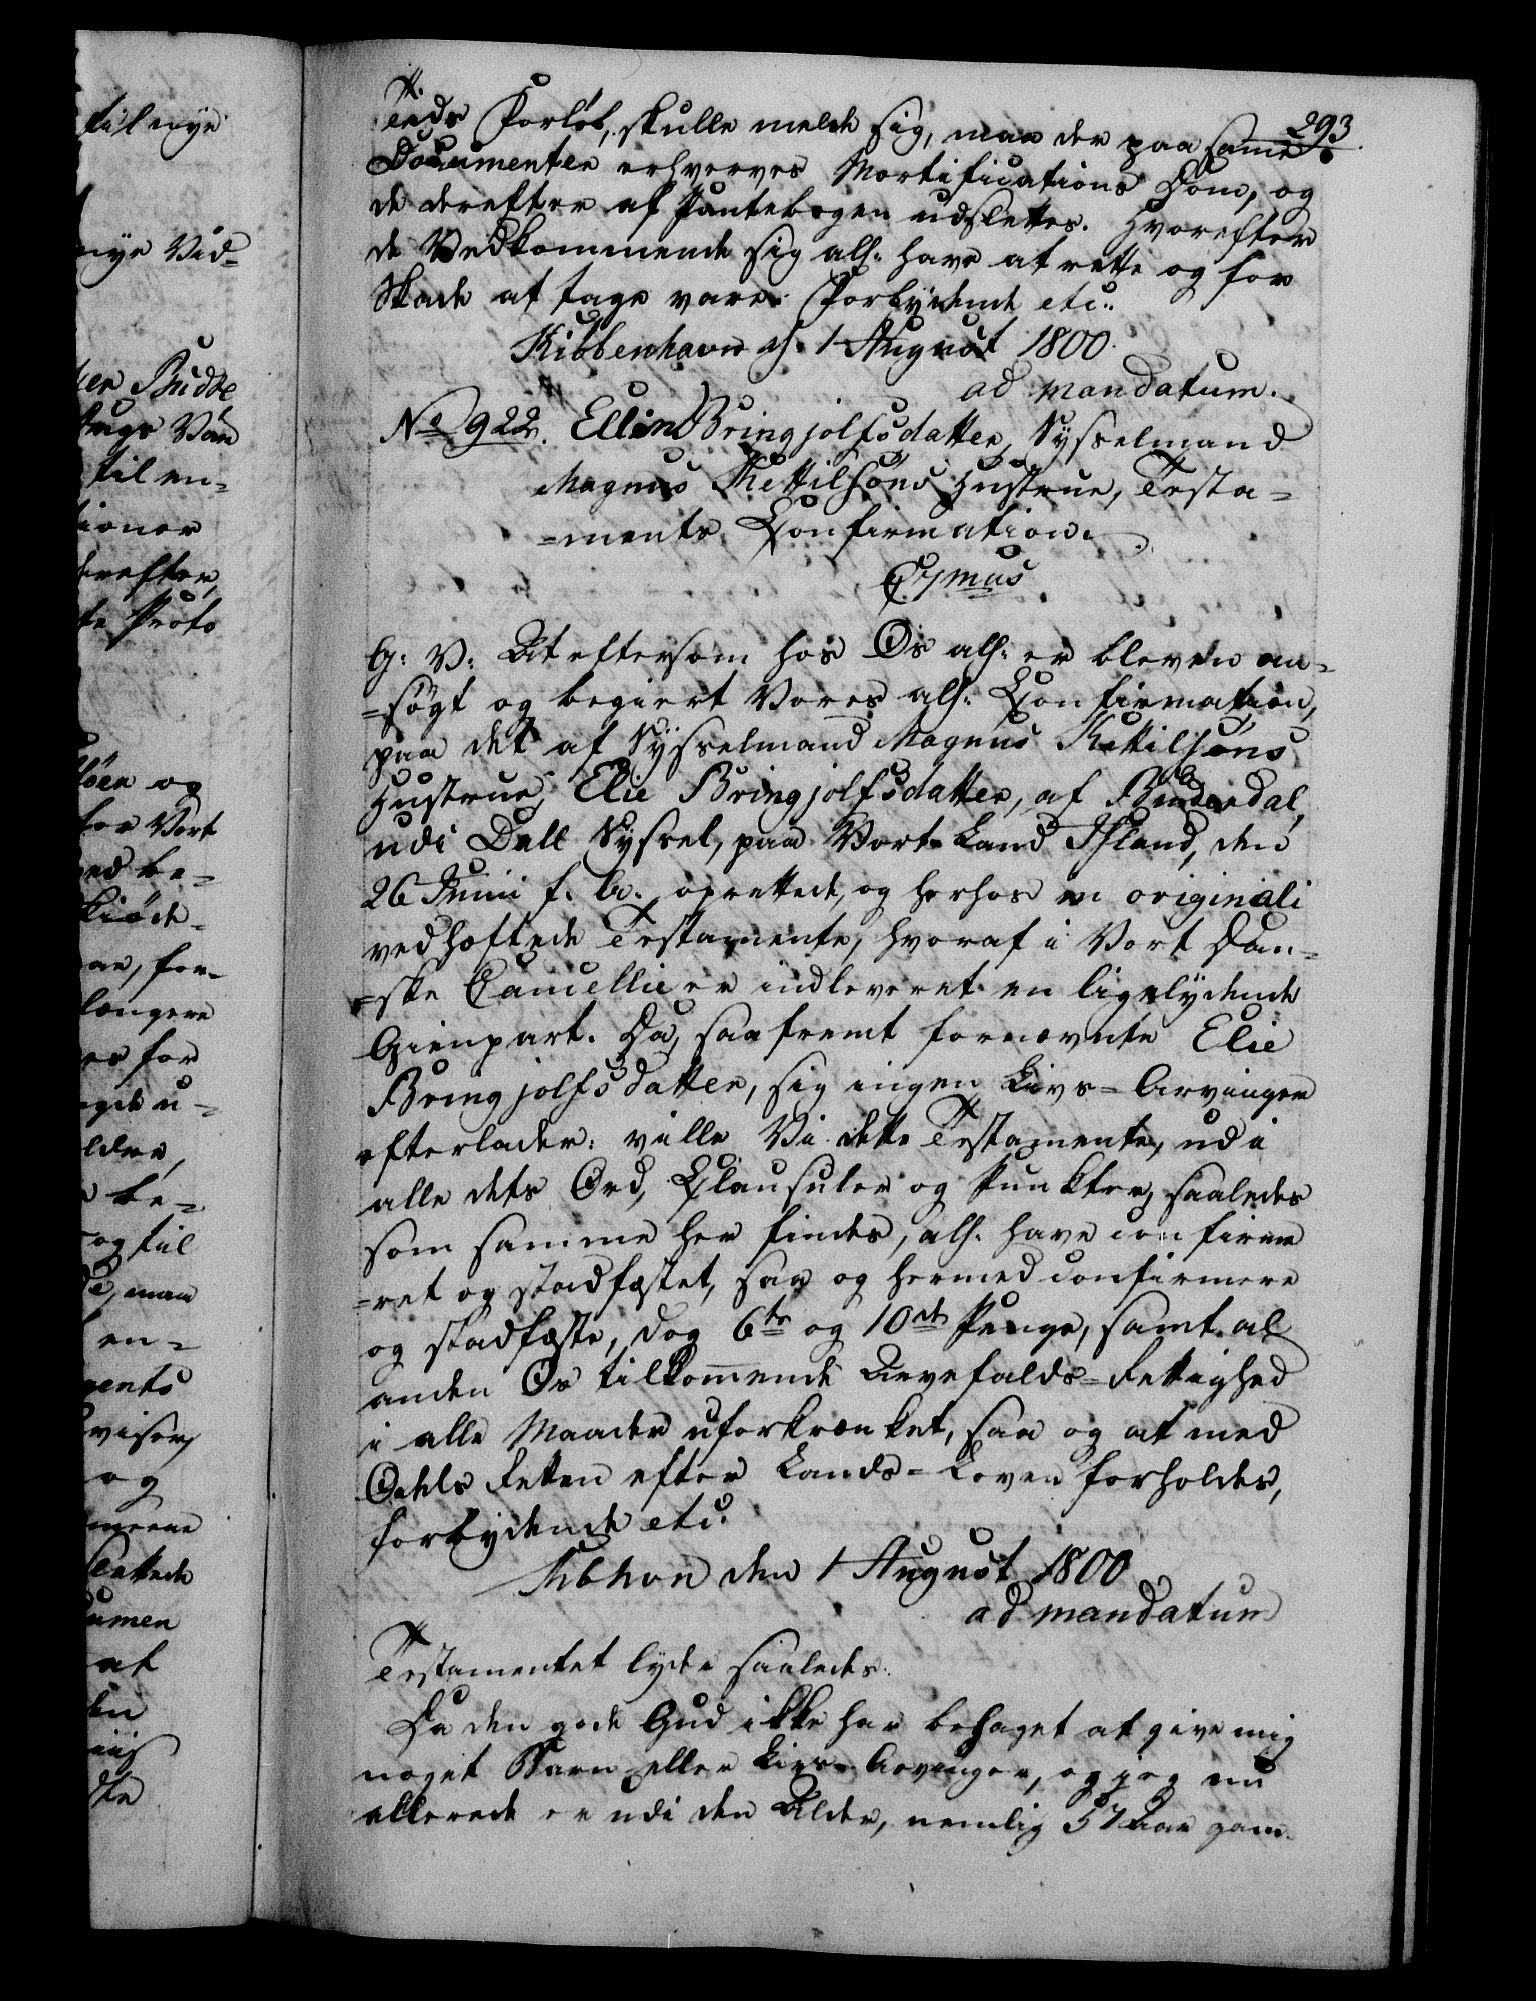 293
Tids Forløb, skulle melde sig, maa der paa samme
Documenter erhverves Mortifications Dom, og
de derefter af Pantebogen udslettes. Hvorefter
de Vedkommende sig alh: have at rette og for
Skade at tage vare. Forbydende etc:
Kibbenhavn d. 1 August 1800.
ad mandatum.
No 922. Ellin Bringjolfsdatter, Sysselmand
Magnus Kettilsöns Hustrue, Testa=
=ments Confirmation.
G: V: At eftersom hos Os alh: er bleven an=
=søgt og begiert Vores alh: Confirmation,
paa det af Sysselmand Magnus Kettilsöns
Hustrue, Elie Bringjolfsdatter, af Budardal,
udi Dale Syssel, paa Vort Land Island, den
26 Junii f. A. oprettede, og herhos in originali
vedhæftede Testamente, hvoraf i Vort Dan=
=ske Cancellie er indleveret en ligelydende
Gienpart. Da, saafremt fornævnte Elie
Bringjolfsdatter, sig ingen Livs=Arvinger
efterlader: ville Vi dette Testamente, udi
alle dets Ord, Clausuler og Punkter, saaledes
som samme her findes, alh: have confirme
=ret og stadfæstet, saa og hermed confirmere
og stadfæste, dog 6te og 10de Penge, samt al
anden Os tilkommende Arvefalds=Rettighed
i alle Maader uforkrænket, saa og at med
Odels Retten efter Lands=Loven forholdes,
forbydende etc:
Kbhvn den 1 August 1800
ad mandatum
Testamentet lyder saaledes.
Da den gode Gud ikke har behaget at give mig
noget Barn eller Livs=Arvinger, og jeg nu
allerede er udi den Alder, nemlig 57 Aar gam
til nye
nye Vid=
Budde
til en=
tioner
derefter,
og
for Vort
ved be=
for=
længere
for
be=
og til
maa
en=
og
at